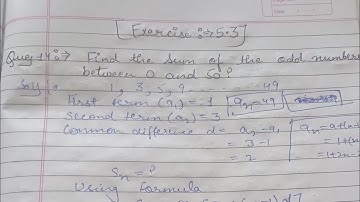 [Exercise :→ 5.3]
Ques 14 :→ Find the sum of the odd numbers
between 0 and 50?
Soln 1, 3, 5, 9 ........ 49
First term (a1) = 1 an = 49
Second term (a2) = 3
Common difference d = a2 - a1
= 3 - 1
= 2
an = a + (n
= 1 + (n
= 1 + 2n
Sn = ?
Using Formula